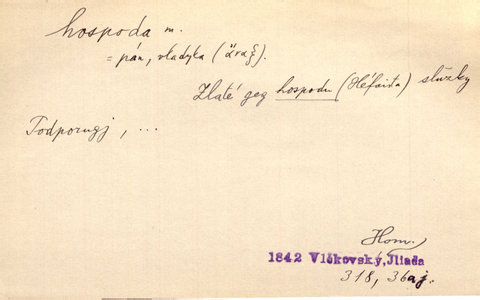 hospoda m.
= pán, vladyka (ἄναξ).
Zlaté geg hospodu (Héfaista) služky
Podporugj, ...
Hom.
1842 Vlčkovský, Iliada
318, 36aj.